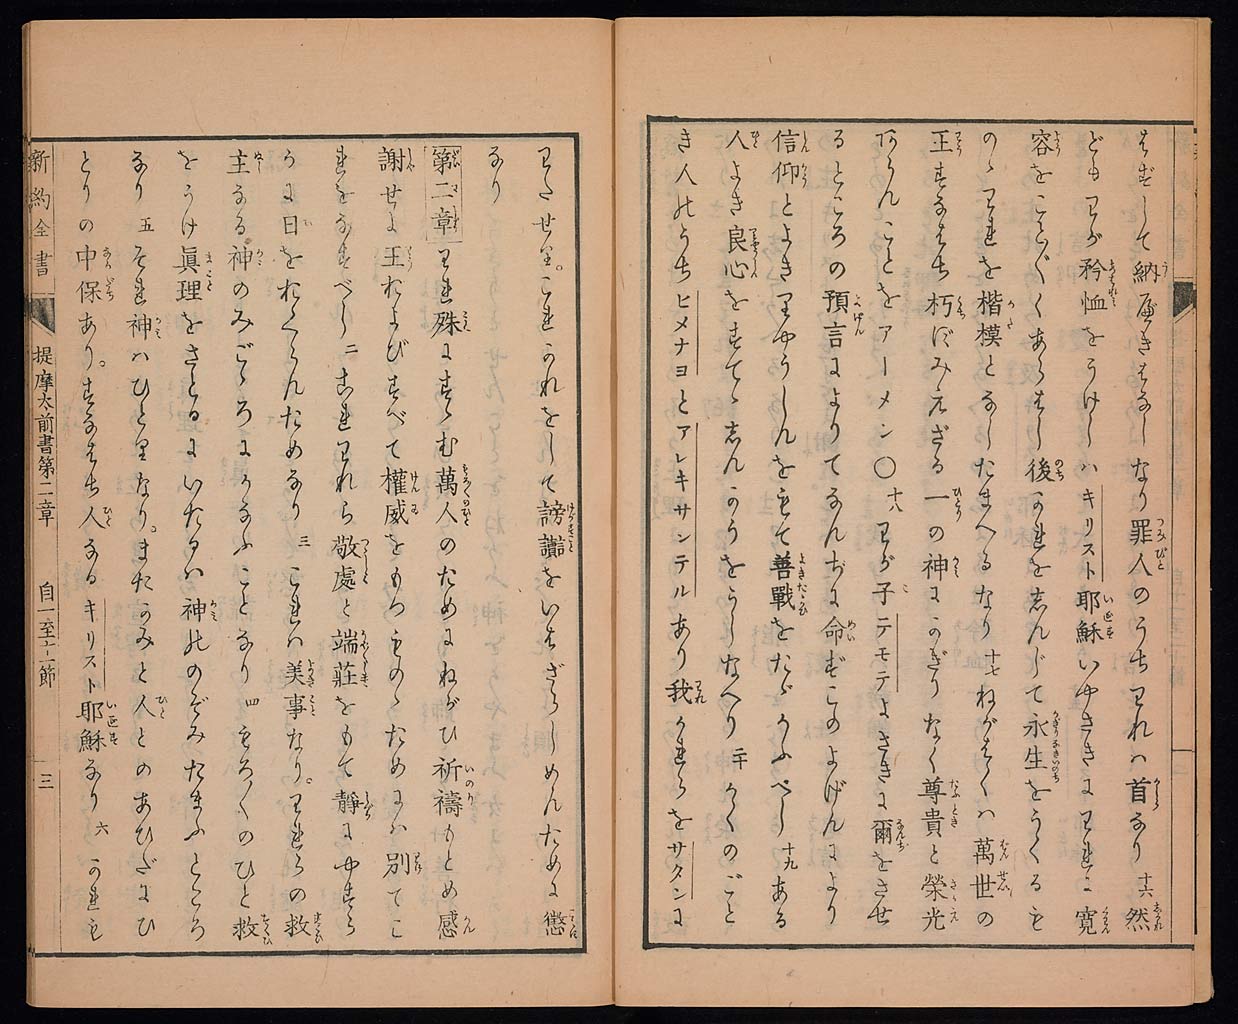 はずして納べきはなしなり罪人のうちわれハ首なり十六然
どもわが矜恤をうけしハキリスト耶穌いやさきにわれに寛
容をことごとくあらはし後かれを志んじて永生をうくるも
のゝわれを楷模となしたまへるなり十七ねがはくハ萬世の
王すなはち朽ずみえざる一の神にかぎりなく尊貴と榮光
あらんことをアーメン〇十八わが子テモテよさきに爾をさせ
るところの預言によりてなんぢに命ずこのよげんにより
信仰とよきりやうしんをもて善戰をたゝかふべし十九ある
人よき良心をすてゝ志んかうをうしなへり二十かくのごと
き人のうちヒメナヨとアレキサンテルあり我かれらをサタンに
わたせり。これかれをして謗讟をいはざらしめんために懲
なり
第二章われ殊にすゝむ萬人のためにねがひ祈禱もとめ感
謝せよ王およびすべて權威をもつものゝためにハ別てこ
れをなすべし二これわれら敬虔と端莊をもて靜にやすら
かに日をおくらんためなり三これハ美事なり。われらの救
主なる神のみごゝろにかなふことなり四もろ〳〵のひと救
をうけ眞理をさとるにいたるハ神ののぞみたまふところ
なり五それ神ハひとりなり。またかみと人とのあひだにひ
とりの中保あり。すなはち人なるキリスト耶穌なり六かれも
新約全書 提摩太前書第二章 自一至十二節 三